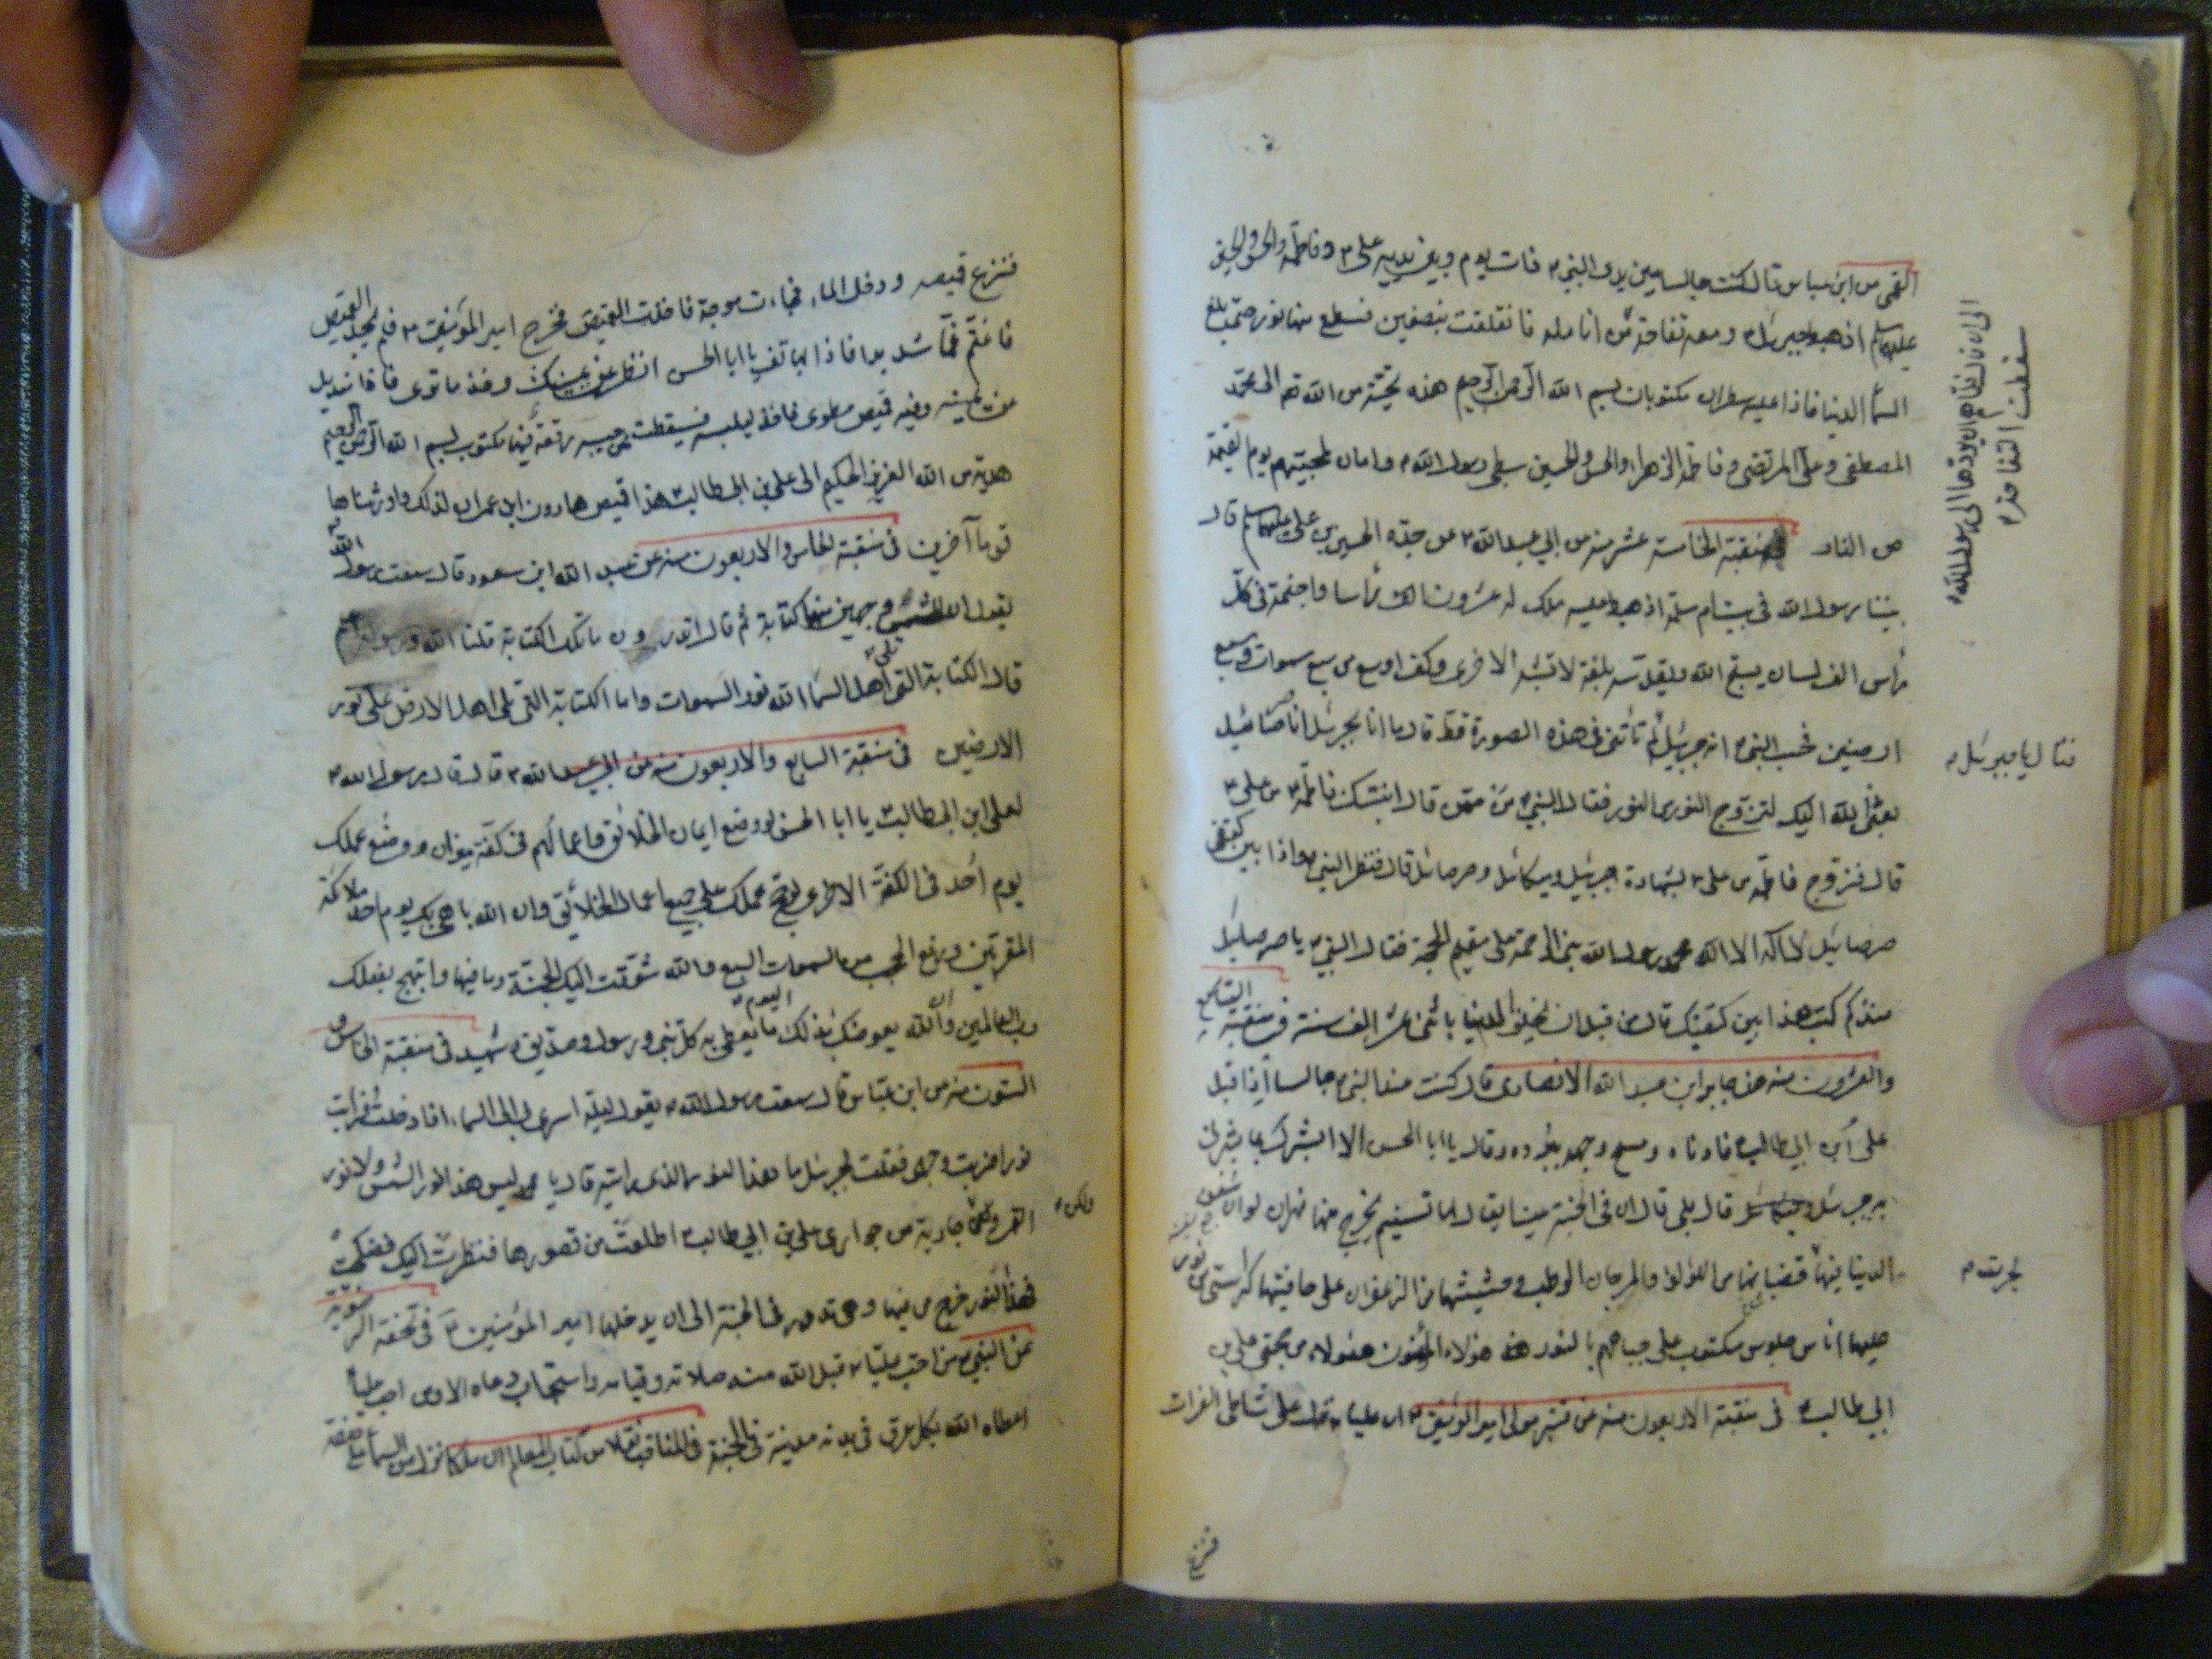 القمى عن ابن عباس قال كنت جالسا بين يدى النبى ذات يوم وبين يديه على وفاطمة والحسن والحسين
عليهم السلم اذ هبط جبرئيل ومعه تفاحة من انامله فانفلقت بنصفين فسطع منها نور حتى بلغ
السما الدنيا فاذا عليه سطران مكتوبان بسم الله الرحمن الرحيم هذه تحية من الله تعالى الى محمد
المصطفى وعلى المرتضى وفاطمة الزهراء والحسن والحسين سبطى رسول الله وامان لمحبيهم يوم القيمة
من النار فى منقبة الخامسة عشر منه عن ابي عبد الله عن جده الحسين بن على عليهم السلم قال
بينا رسول الله فى بيت ام سلمة اذ هبط عليه ملك له عشرون الف رأسا واجنحة فى كل
رأس الف لسان يسبح الله ويقدسه بلغة لا تشبه الاخرى وكفه اوسع من سبع سموات وسبع
ارضين فحسب النبى انه جبرئيل لم تأتنى فى هذه الصورة قط قال ما انا بجبرئيل انا صرصائيل
بعثنى الله اليك لتزوج النور من النور فقال النبى من ممن قال ابنتك فاطمة من على
قال فزوج فاطمة من على بشهادة جبرئيل وميكائيل وصرصائيل قال فنظر النبى واذا بين كتفى
صرصائيل لا اله الا الله محمد رسول الله نبى الرحمة على مقيم الحجة فقال النبى يا صرصائيل
منذ كم كتب هذا بين كتفيك قال من قبل ان يخلق الدنيا باثنى عشر الف سنة فى منقبة التاسع
والعشرون منه عن جابر ابن عبد الله الانصارى قال كنت عند النبى جالسا اذ اقبل
على ابن ابي طالب فادناه ومسح وجهه ببرده وقال يا ابا الحسن الا ابشرك بما بشرنى
به جبرئيل قال بلى قال ان فى الجنة عينا يقال لها تسنيم يخرج منها نهران لو ان سفن
الدنيا فيها قضبانها من اللؤلؤ والمرجان الرطب وحشيشها من الزعفران على حافتيها كراسى من نور
عليها اناس جلوس مكتوب على جباههم بالنور هؤلاء المؤمنون هؤلاء من محبى على بن
ابي طالب فى منقبة الاربعون منه عن قنبر مولى امير المؤمنين ان عليا على شاطى الفرات
فنزع
سقطت التفاحة
فقال يا جبرئيل
لجرت
فنزع قميصه ودخل الماء فجاءت موجة فاخذت القميص فخرج امير المؤمنين فلم يجد القميص
فاغتم غما شديدا فاذا بهاتف يا ابا الحسن انظر عن يمينك وخذ ما ترى فاذا منديل
عن يمينه وفيه قميص مطوى فاخذه ليلبسه فسقطت من جيبه رقعة فيها مكتوب بسم الله الرحمن الرحيم
هدية من الله العزيز الحكيم الى على بن ابى طالب هذا قميص هارون ابن عمران كذلك واورثناها
قوما آخرين فى منقبة الخامس والاربعون منه عن عبد الله ابن مسعود قال سمعت رسول الله
يقول للشمس وجهين كتابة ثم قال اتدرون ما تلك الكتابة قلنا الله ورسوله اعلم
قال الكتابة التى تلى اهل السما الله نور السموات واما الكتابة التى تلى اهل الارض على نور
الارضين فى منقبة السابع والاربعون منه عن ابي عبد الله قال قال رسول الله
لعلى ابن ابى طالب يا ابا الحسن لو وضع ايمان الخلائق واعمالهم فى كفة ميزان ووضع عملك
يوم احد فى الكفة الاخرى لرجح عملك على جميع اعمال الخلائق وان الله باهى بك يوم احد ملائكة
المقربين ورفع الحجب من السموات السبع والله شوقت اليك الجنة وما فيها وابتهج بفعلك
رب العالمين وان الله يعوضك بذلك اليوم ما يغبطه به كل نبى ورسول وصديق وشهيد فى منقبة الخامس و
الستون منه عن ابن عباس قال سمعت رسول الله يقول ليلة اسرى بى الى السماء انا دخلت فرايت
نورا ضرب وجهى فقلت لجبرئيل ما هذا النور الذى رايته قال يا محمد ليس هذا نور الشمس ولا نور
القمر ولكن جارية من جوارى على بن ابي طالب اطلعت من قصورها فنظرت اليك فضحكت
فهذا النور خرج من فيها وهى تدور فى الجنة الى ان يدخلها امير المؤمنين فى تحفة الرضوية
عن النبى من احب عليا قبل الله منه صلاته وقيامه واستجاب دعاه الا ومن احب عليا
اعطاه الله بكل عرق فى بدنه مدينة فى الجنة فى المناقب نقلا من كتاب المعالم ان ملكا نزل من السما على صفة
ولكن